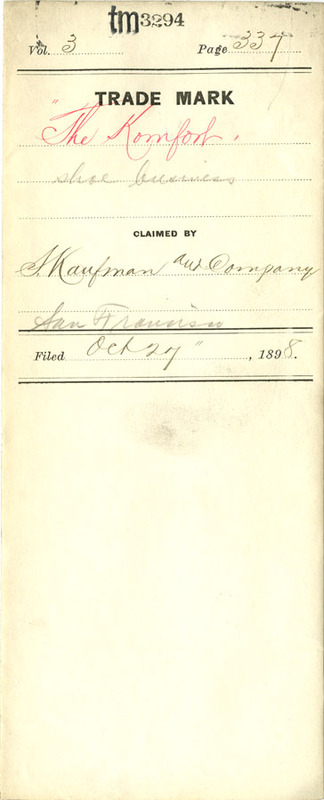 tm3294
Vol. 3 Page 337
TRADE MARK
"The Komfort.
shoe business
CLAIMED BY
S. Kaufman and Company
San Francisco
Filed Oct 29", 1898.